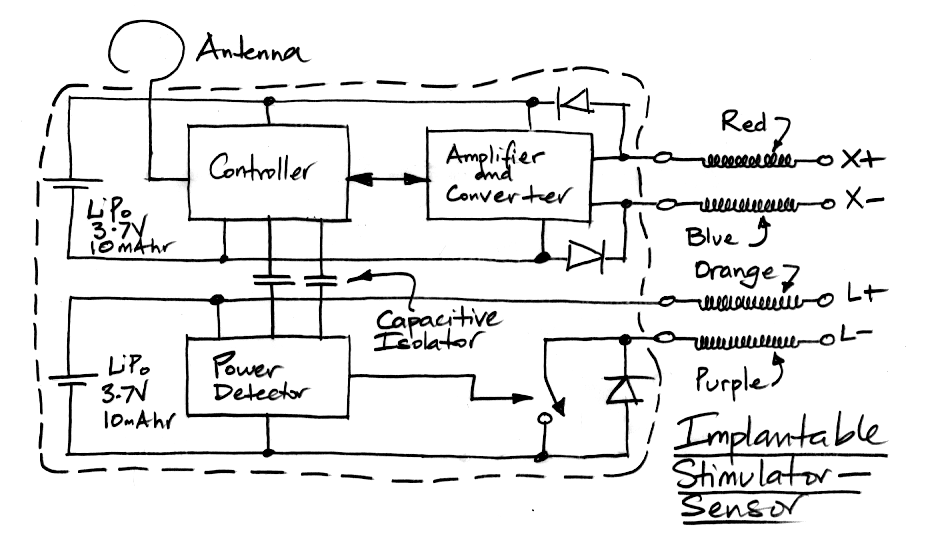 Antenna
Controller
Amplifier
and
Converter
LiPo
3.7V
10mAhr
Red
X+
X-
Blue
Orange
L+
L-
Purple
Capacitive
Isolator
LiPo
3.7V
10mAhr
Power
Detector
Implantable
Stimulator-
Sensor